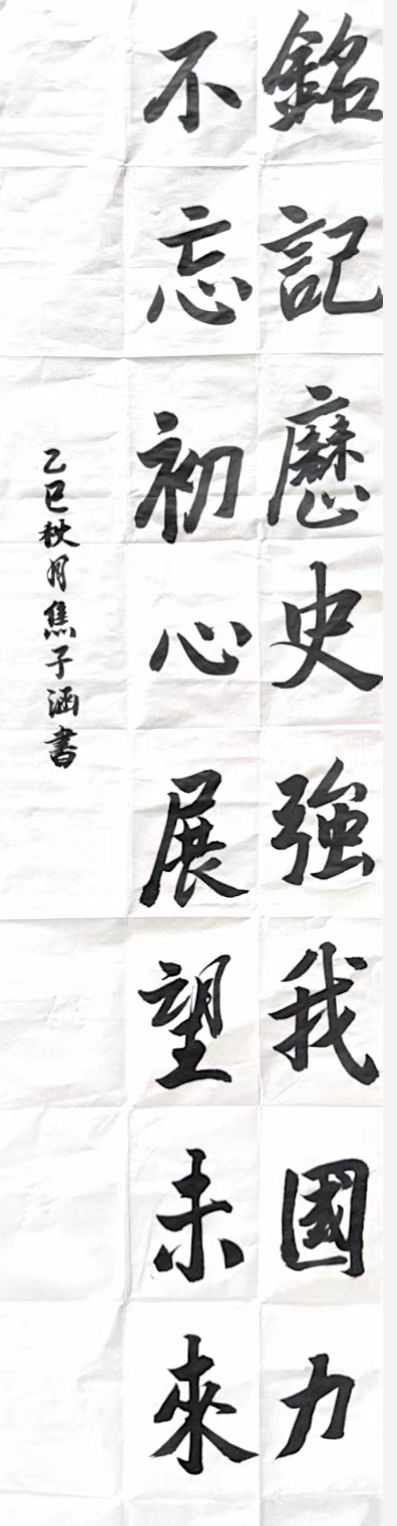 銘記歷史強我國力
不忘初心展望未來
乙巳秋月焦子涵書